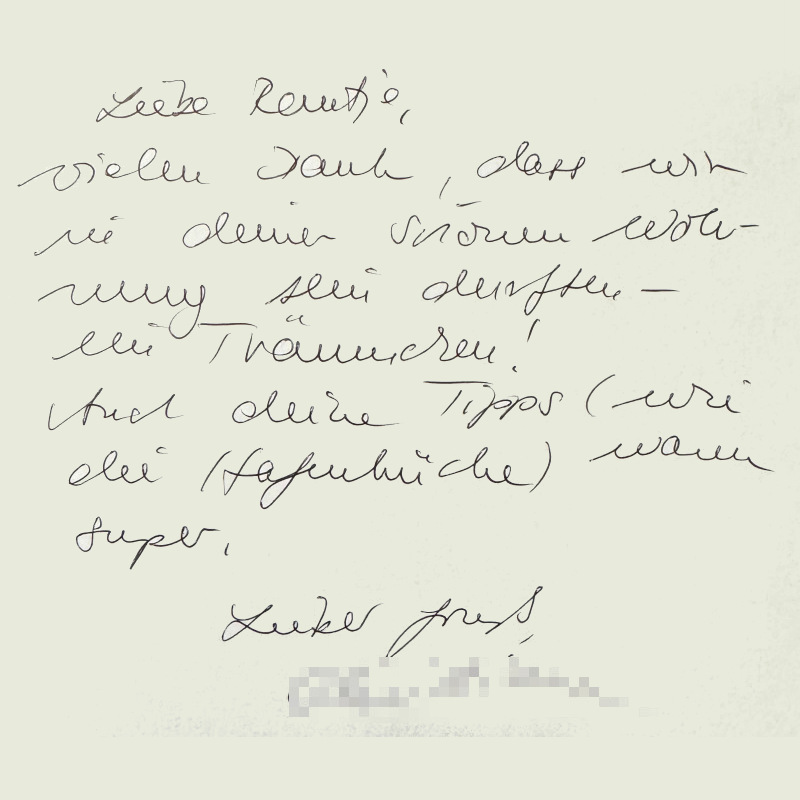 Liebe Rentje,
vielen Dank, dass wir
in deiner schönen Woh-
nung sein durften –
ein Träumchen!
Auch deine Tipps (wie
die Hafenküche) waren
super.
Lieber Gruß,